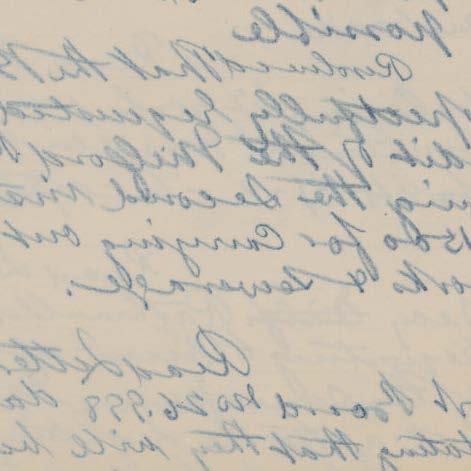 possible
Resolved that the
pectfully requested
dit of the Milford
ing the second inst
for Carrying out
orks & Sewerage.
Read letter
Board No da
tating that they will ha